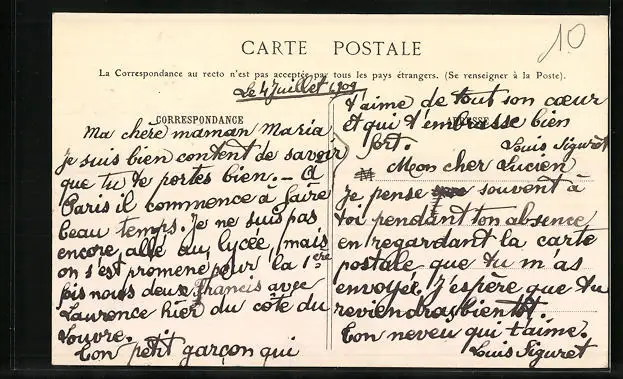 10
CARTE POSTALE
La Correspondance au recto n'est pas acceptée par tous les pays étrangers. (Se renseigner à la Poste).
Le 4 Juillet 1909
CORRESPONDANCE
Ma chère maman Maria
je suis bien content de savoir
que tu te portes bien. — A
Paris il commence à faire
beau temps. Je ne suis pas
encore allé au lycée, mais
on s'est promené pour la 1ère
fois nous deux Francis avec
Laurence hier du côté du
Louvre.
Ton petit garçon qui
t'aime de tout son cœur
ADRESSE
et qui t'embrasse bien
fort. Louis Siguret
Mon cher Lucien
Je pense souvent à
toi pendant ton absence
en regardant la carte
postale que tu m'as
envoyée, j'espère que tu
reviendras bientôt.
Ton neveu qui t'aime.
Louis Siguret